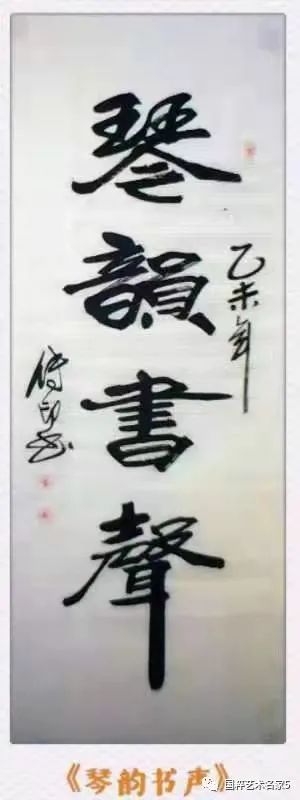 琴韻書聲
乙未年
《琴韵书声》
国粹艺术名家5